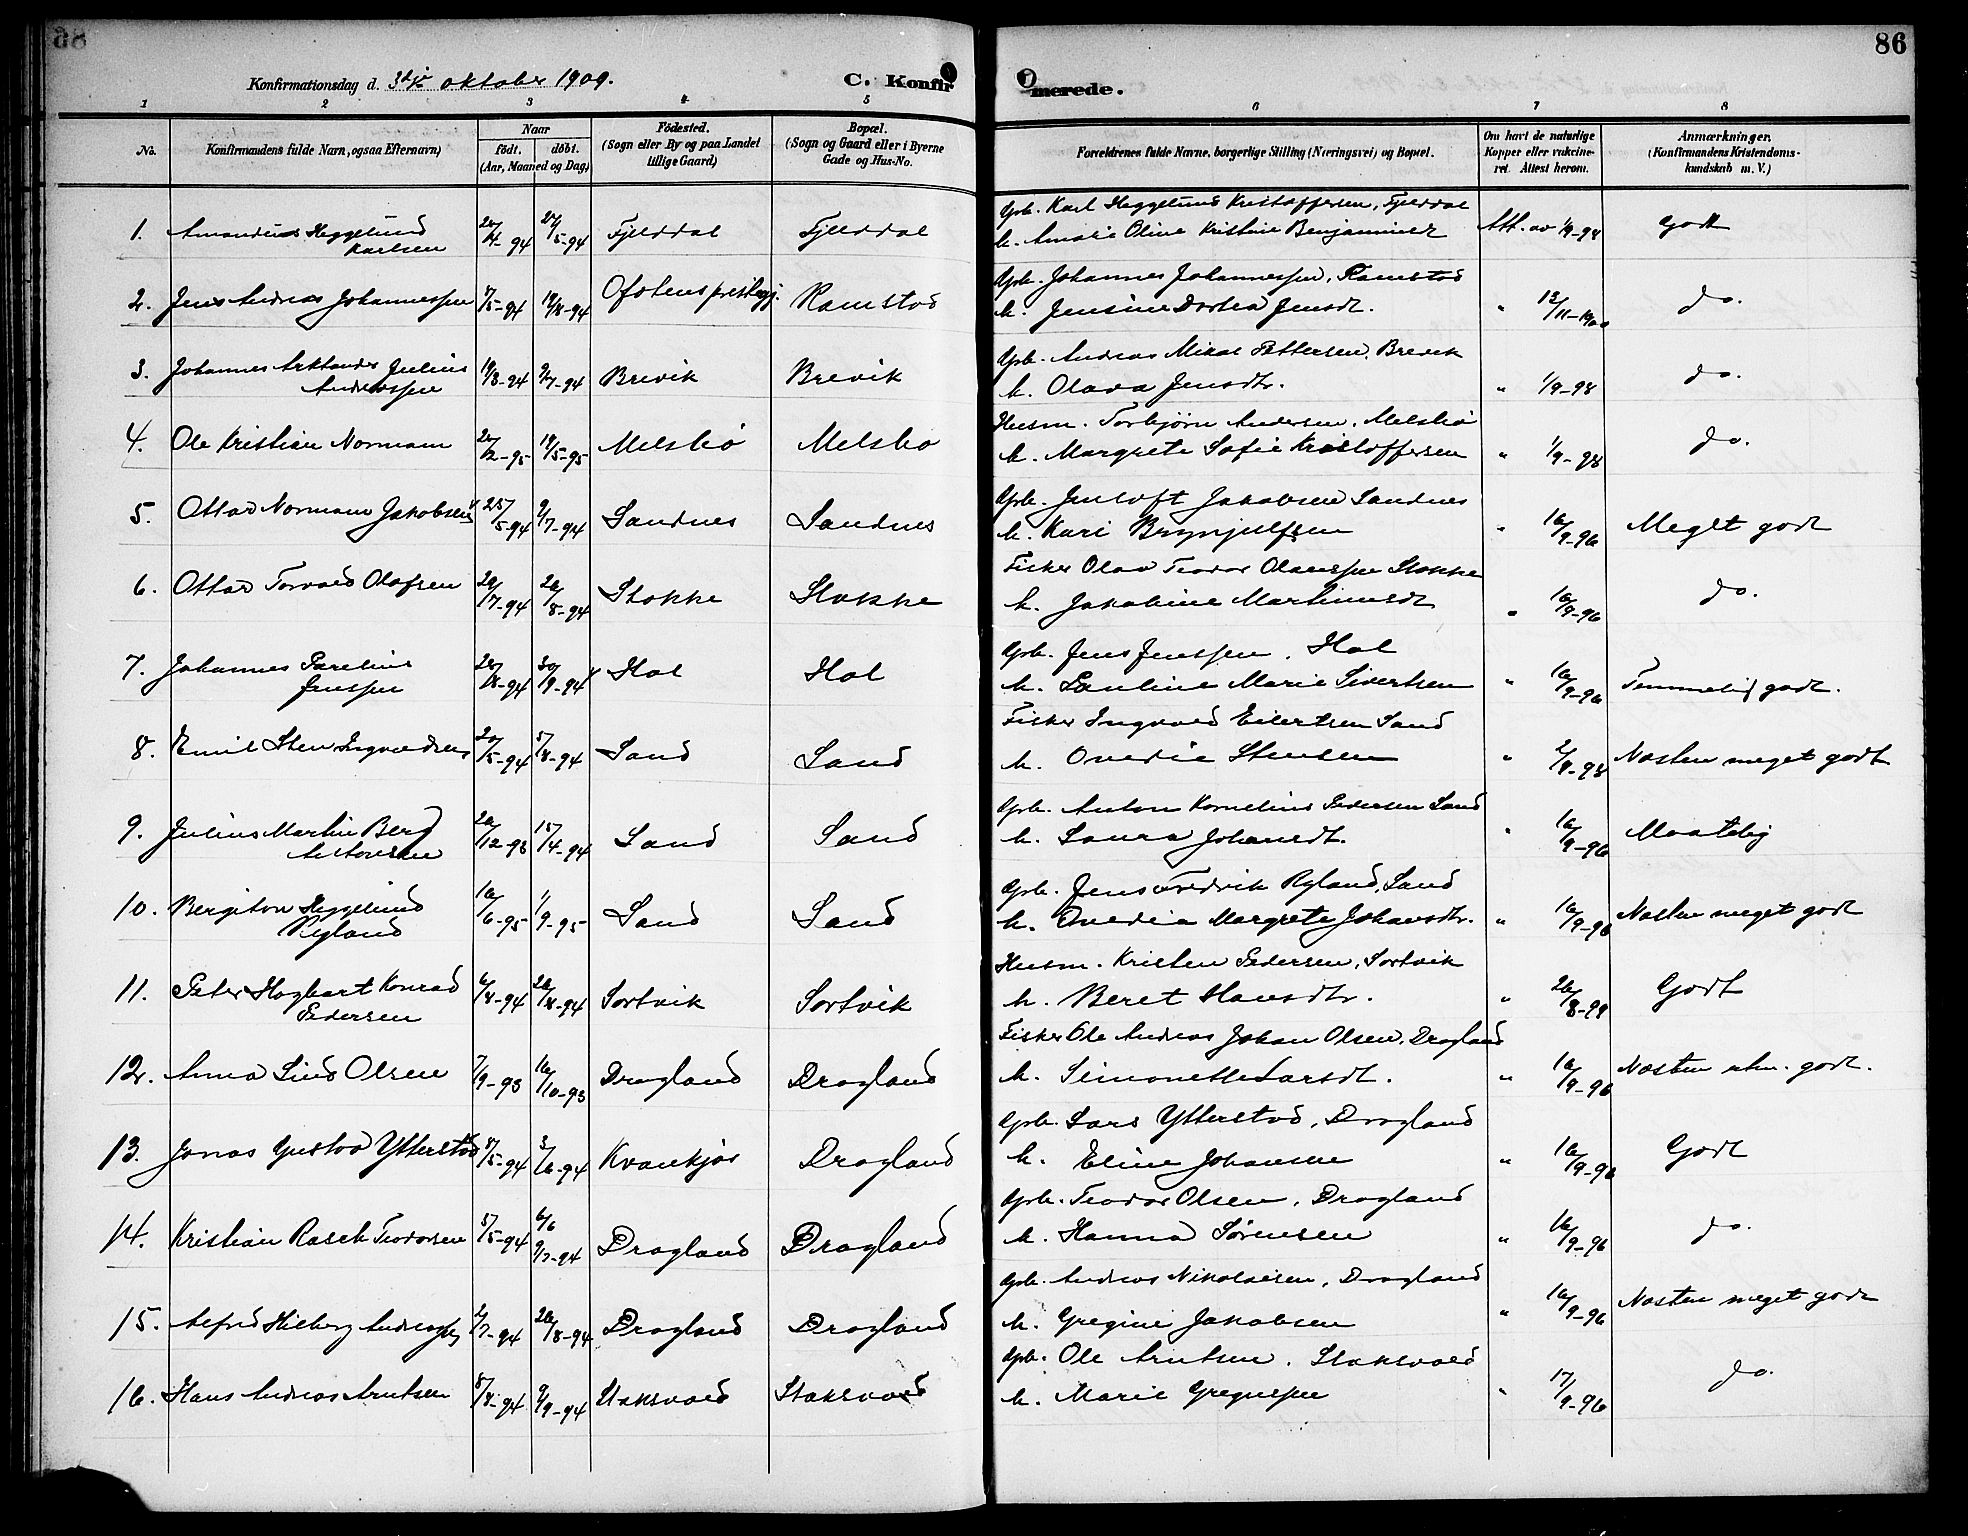 86
Konfirmationsdag d. 3dje oktober 1909. C. Konfirmerede.
1 2 3 4 5 6 7 8
No. Konfirmandens fulde Navn, ogsaa Efternavn) Naar født. døbt. (Aar, Maaned og Dag) Fødested. (Sogn eller By og paa Landet tillige Gaard) Bopæl. (Sogn og Gaard eller i Byerne Gade og Hus-No. Forældrenes fulde Navne, borgerlige Stilling (Næringsvei) og Bopæl. Om havt de naturlige Kopper eller vakcineret. Attest herom. Anmærkninger, (Konfirmandens Kristendomskundskab m. V.)
1. Amandus Heggelund Karlsen 94 27/5-94 Fjelddal Fjelddal Gpb. Karl Heggelund Kristoffersen, Fjelddal
h. Amalie Oline Kristine Benjaminsd. Att. av 1/9-98 godt
2. Jens Andreas Johannessen 8/5-94 19/8-94 Ofotens prestegj. Ramstad Gpb. Johannes Johannessen, Ramstad
h. Jensine Dortea Jensdt. " 12/11-1900 do.
3. Johannes Arktander Julius Andreassen 19/3-94 9/7-94 Brevik Brevik Gpb. Andreas Mikal Pettersen, Brevik
h. Olava Jensdtr. " 1/9-98 do.
4. Ole Kristian Normann 2-95 19/5-95 Melsbø Melsbø Husm. Torbjørn Andersen, Melsbø
h. Margrete Sofie Kristoffersen " 1/9-98 do.
5. Ottar Normann Jakobsen 25/5-94 9/7-94 Sandnes Sandnes Gpb. Jentoft Jakobsen Sandnes
h. Kari Brynjulfsen " 16/9-96 Meget godt
6. Ottar Torvald Olafsen 7-94 26/8-94 Stokke Stokke Fisker Olav Teodor Olaussen Stokke
h. Jakobine Martinusdt " 16/9-96 do.
7. Johannes Parelius Jenssen 94 30/9-94 Hol Hol Gpb. Jens Jenssen, Hol
h. Pauline Marie Sivertsen " 16/9-96 Temmelig godt.
8. Emil Sten Ingvaldsen 20/5-94 5/8-94 Sand Sand Fisker Ingvald Eilertsen Sand
h. Ovedie Stensen " 98 Næsten meget godt
9. Julius Martin Berg Antonsen 12-93 15/4-94 Sand Sand Gpb. Anton Kornelius Pedersen Sand
h. Laura Johansdt. " 16/9-96 Maatelig
10. Bergiton Heggelund Ryland 16/6-95 1/9-95 Sand Sand Gpb. Jens Fredrik Ryland, Sand
h. Ovedia Margrete Johansdtr. " 16/9-96 Næsten meget godt
11. Peter Hagbart Konrad Pedersen 6/8-94 26/8-94 Sortvik Sortvik Husm. Kristen Pedersen, Sortvik
h. Beret Hansdtr. " 26/8-99 Godt
12. Anna Lind Olsen 7/9-93 16/10-93 Dragland Dragland Fisker Ole Andreas Johan Olsen, Dragland
h. Simonette Larsdt. " 16/9-96 Næsten godt.
13. Jonas Gustav Ytterstad 8/5-94 3/6-94 Kvankjos Dragland Gpb. Lars Ytterstad, Dragland
h. Eline Johansen " 16/9-96 Godt
14. Kristian Rasch Teodorsen 5/5-94 6/6 9/7-94 Dragland Dragland Gpb. Teodor Olsen, Dragland
h. Hanna Sørensen " 16/9-96 do.
15. Alfred Hilberg Andreassen 2/7-94 26/8-94 Dragland Dragland Gpb. Andreas Nikolaisen, Dragland
h. Gregine Jakobsen " 16/9-96 Næsten meget godt
16. Hans Andreas Arntsen 8/8-94 9/9-94 Staksvold Staksvold Gpb. Ole Arntsen, Staksvold
h. Marie Gregussen " 17/9-96 do.